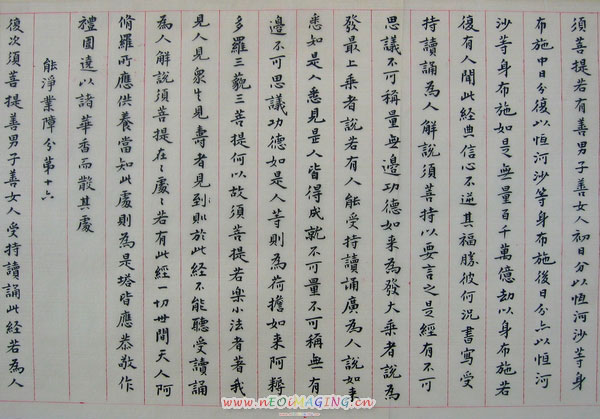 須菩提若有善男子善女人初日分以恒河沙等身
布施中日分復以恒河沙等身布施後日分亦以恒河
沙等身布施如是無量百千萬億劫以身布施若
復有人聞此經典信心不逆其福勝彼何況書寫受
持讀誦為人解說須菩提以要言之是經有不可
思議不可稱量無邊功德如來為發大乘者說為
發最上乘者說若有人能受持讀誦廣為人說如來
悉知是人悉見是人皆得成就不可量不可稱無有
邊不可思議功德如是人等則為荷擔如來阿耨
多羅三藐三菩提何以故須菩提若樂小法者著我
見人見眾生見壽者見到則於此經不能聽受讀誦
為人解說須菩提在在處處若有此經一切世間天人阿
脩羅所應供養當知此處則為是塔皆應恭敬作
禮圍遶以諸華香而散其處
能淨業障分第十六
復次須菩提善男子善女人受持讀誦此經若為人
www.nEOiMAGiNG.cn